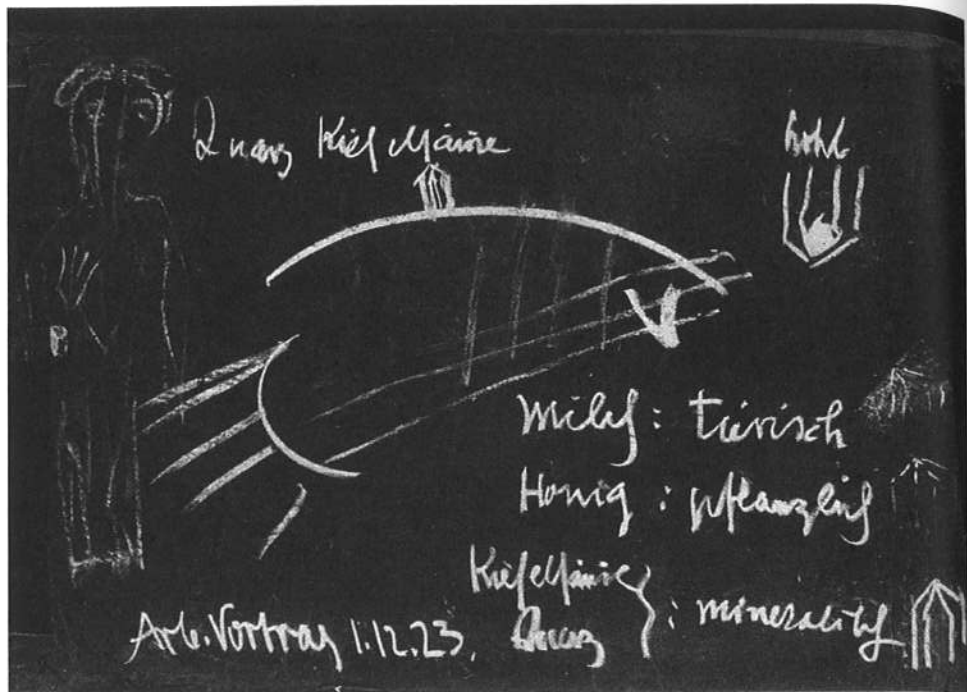 Quarz Kieselsäure
hohl
Milch: tierisch
Honig: pflanzlich
Kieselsäure
Quarz } : mineralisch
Arb. Vortrag 1.12.23.